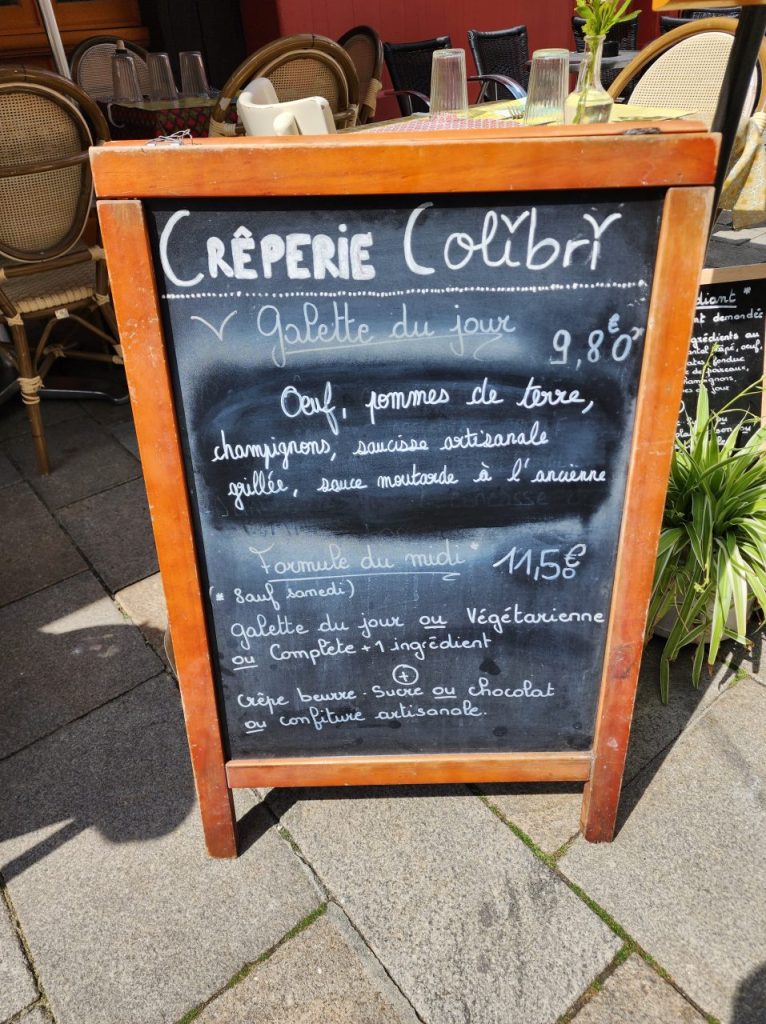 CRÊPERIE Colibri
Galette du jour 9,80€
Oeuf, pommes de terre,
champignons, saucisse artisanale
grillée, sauce moutarde à l'ancienne
Formule du midi* 11,50€
(* Sauf samedi)
galette du jour ou Végétarienne
ou Complète + 1 ingrédient
+
Crêpe beurre-Sucre ou chocolat
ou confiture artisanale.
diant *
nt demandée
rédients au
champignons,